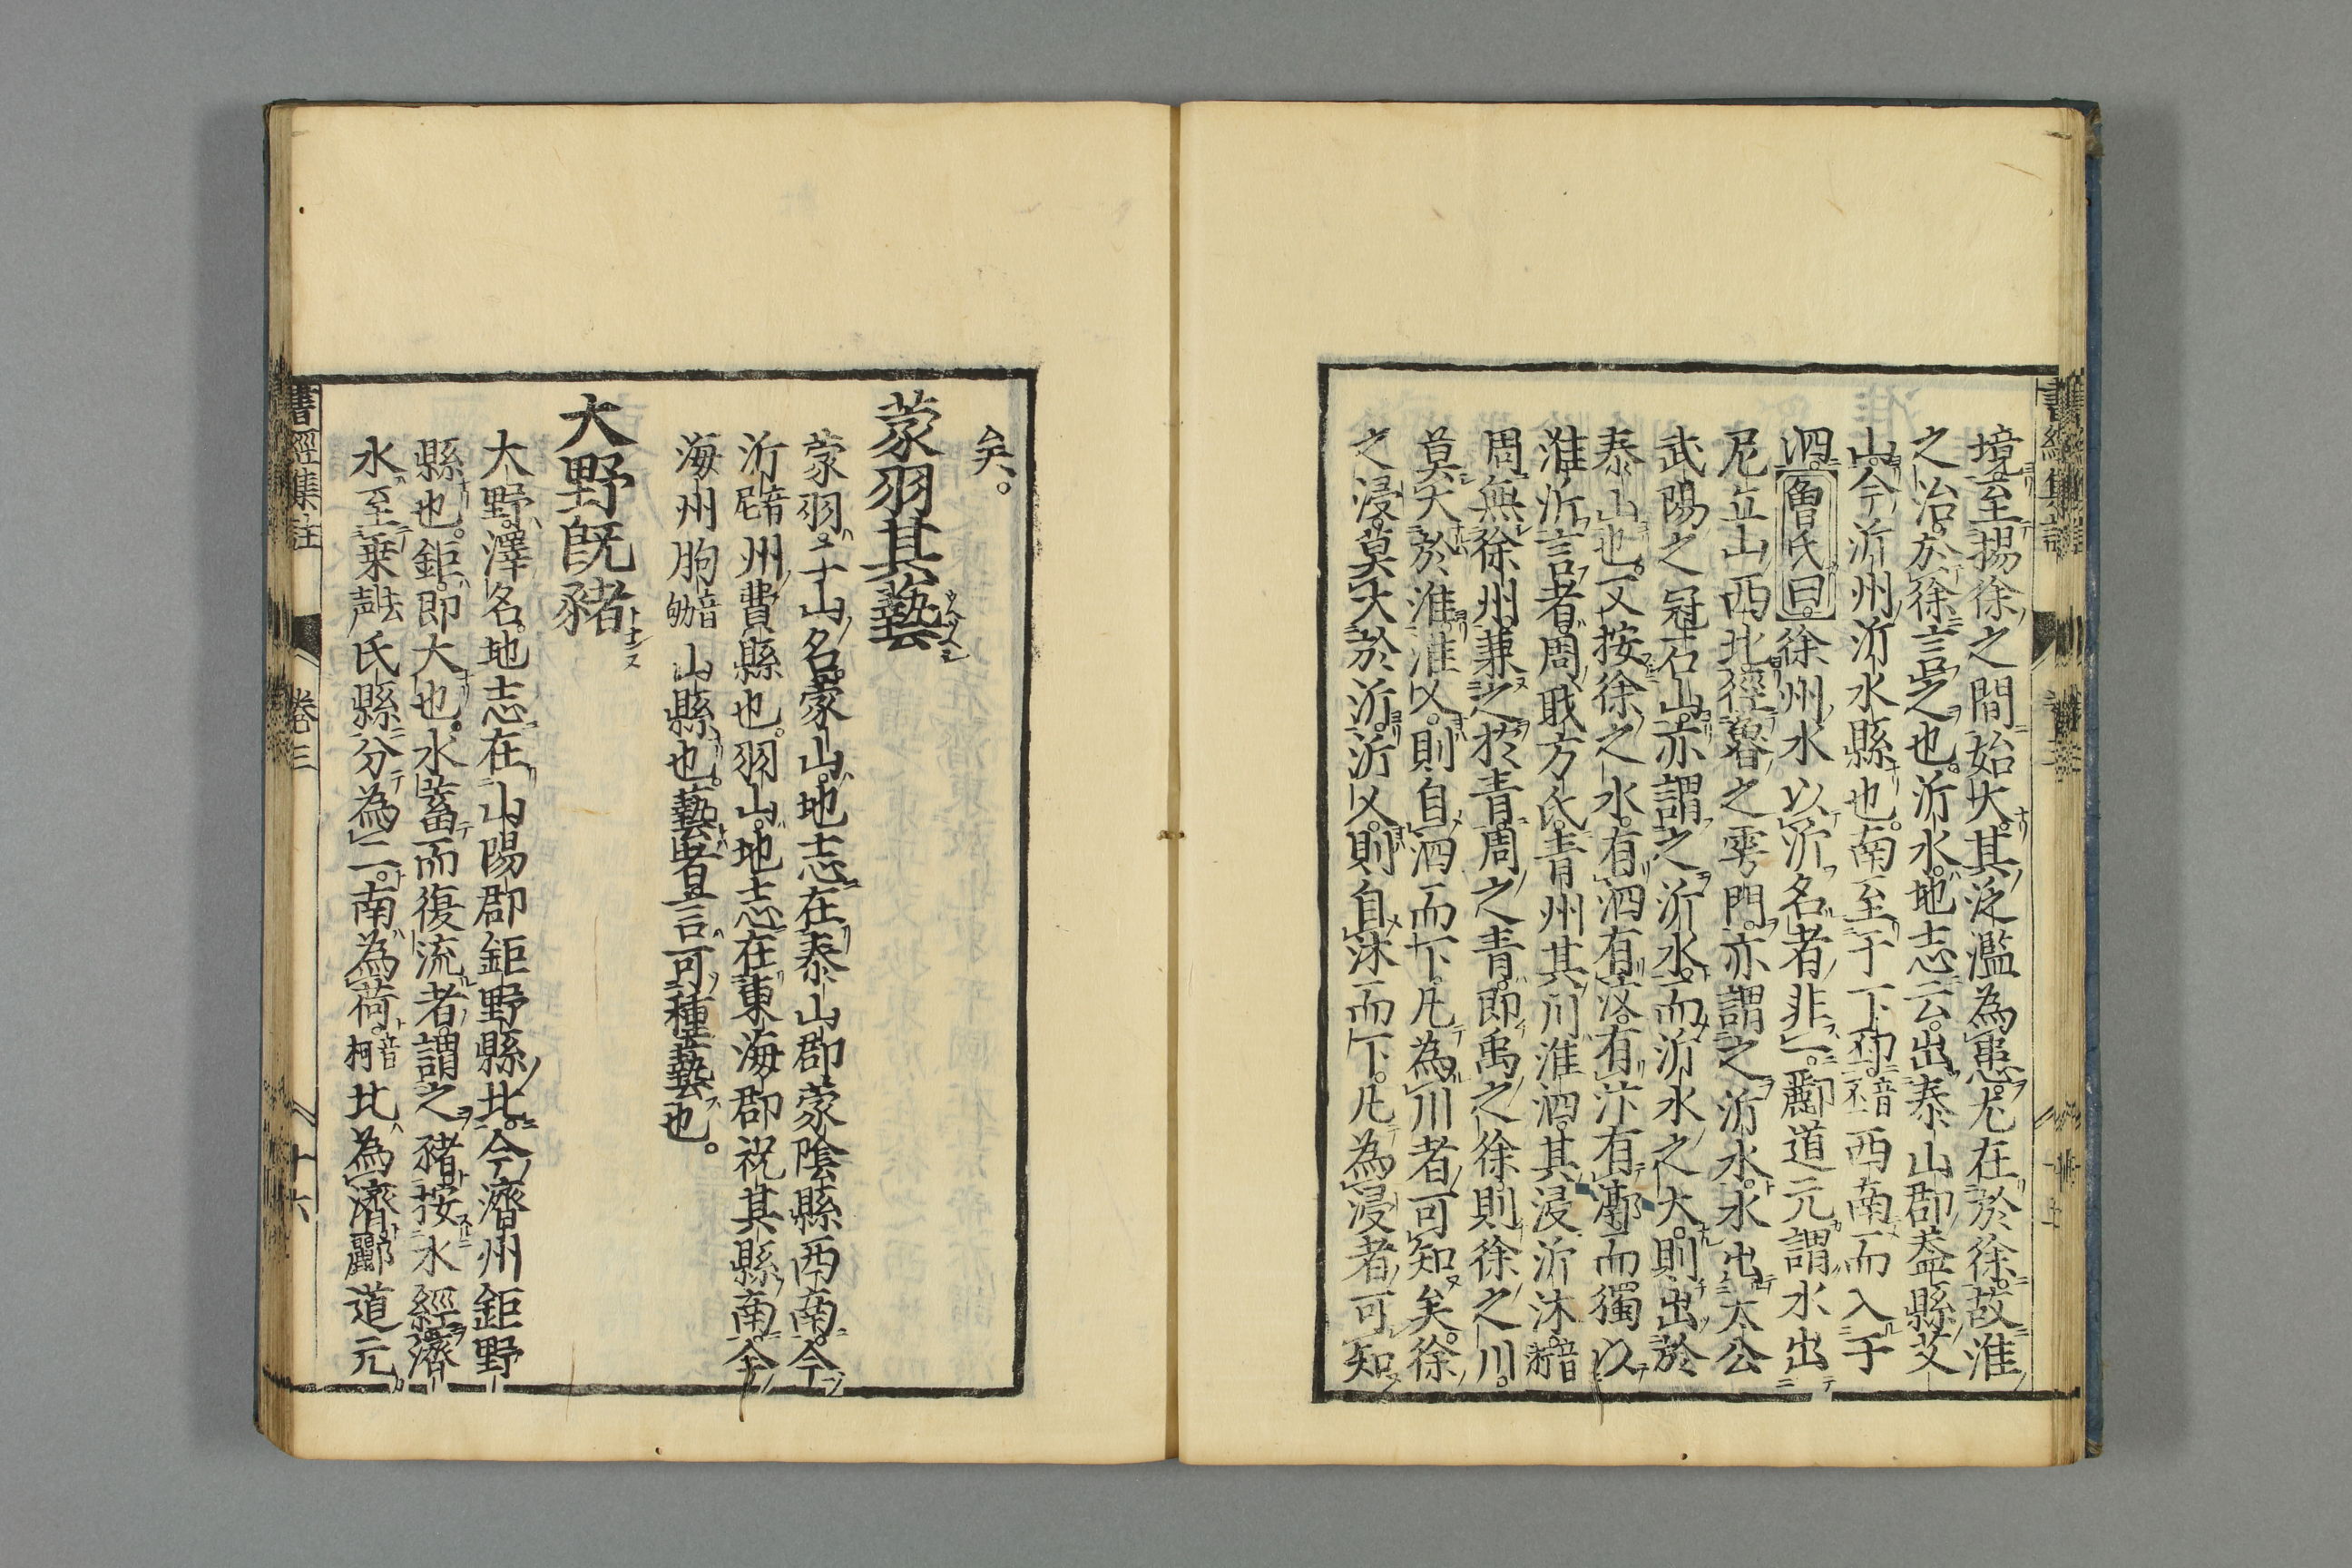 境至揚徐之間始大其泛濫為患尤在於徐故淮
之治於徐言之也沂水地志云出泰山郡蓋縣艾
山今沂州沂水縣也南至于下邳音丕西南而入于
泗魯氏曰徐州水以沂名者非一酈道元謂水出
尼丘山西北徑魯之雩門亦謂之沂水水出太公
武陽之冠石山亦謂之沂水而沂水之大則出於
泰山也又按徐之水有泗有汶有汴有漷而獨以
淮沂言者周職方氏青州其川淮泗其浸沂沭音術
周無徐州兼之於青周之青即禹之徐則徐之川
莫大於淮淮乂則自泗而下凡為川者可知矣徐
之浸莫大於沂沂乂則自沭而下凡為浸者可知
矣
蒙羽其藝
蒙羽二山名蒙山地志在泰山郡蒙陰縣西南今
沂州費縣也羽山地志在東海郡祝其縣南今
海州朐音劬山縣也藝者言可種藝也
大野旣豬
大野澤名地志在山陽郡鉅野縣北今濟州鉅野
縣也鉅即大也水蓄而復流者謂之豬按水經濟
水至乗氏縣分為二南為荷音柯北為濟酈道元
書經集註 卷三 十六